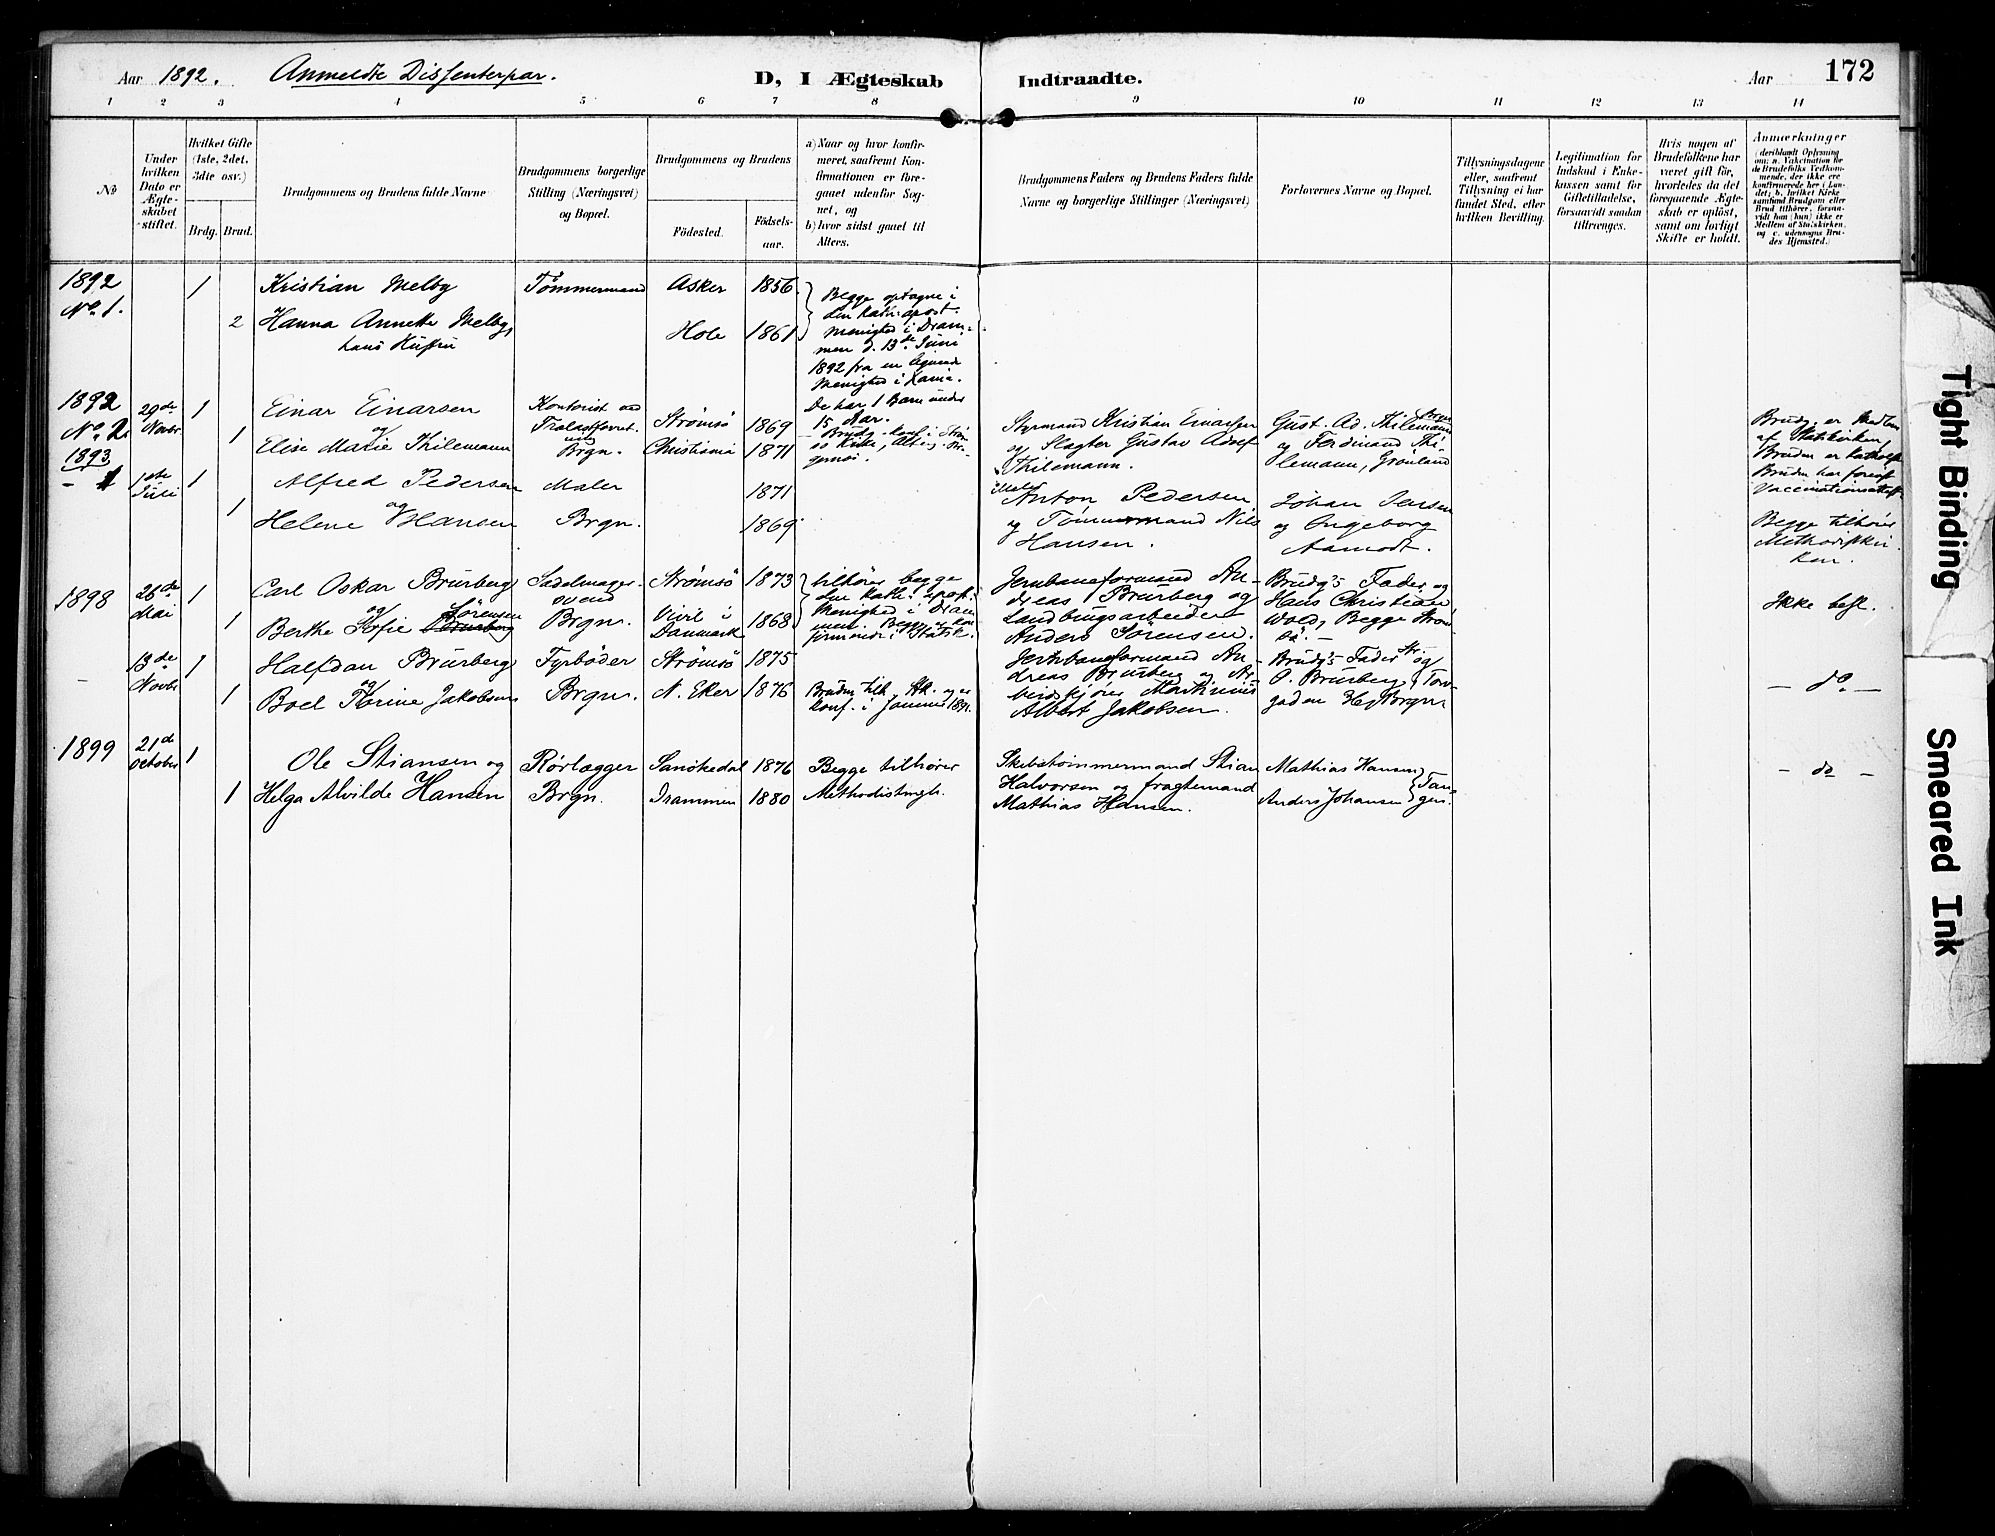 Aar 1892. Anmeldte Dissenterpar. D, I Ægteskab Indtraadte. Aar 172
1 2 3 3 4 5 6 7 8 9 10 11 12 13 14
No
Under hvilken Dato er Ægteskabet stiftet.
Hvilket Gifte (1ste, 2det, 3dte osv.)
Brdg. Brud.
Brudgommens og Brudens fulde Navne
Brudgommens borgerlige Stilling (Næringsvei) og Bopæl.
Brudgommens og Brudens
Fødested. Fødsels-aar.
a) Naar og hvor konfirmeret, saafremt Konfirmationen er foregaaet udenfor Sognet, og
b) hvor sidst gaaet til Alters.
Brudgommens Faders og Brudens Faders fulde Navne og borgerlige Stillinger (Næringsvei)
Forlovernes Navne og Bopæl.
Tillysningsdagene eller, saafremt Tillysning ei har fundet Sted, efter hvilken Bevilling.
Legitimation for Indskud i Enkekassen samt for Giftetilladelse, forsaavidt saadan tiltrænges.
Hvis nogen af Brudefolkene har været gift før, hvorledes da det foregaaende Ægteskab er opløst, samt om lovligt Skifte er holdt.
Anmærkninger (deriblandt Oplysning om: a. Vakcination for de Brudefolks Vedkommende, der ikke ere konfirmerede her i Landet; b. hvilket Kirkesamfund Brudgom eller Brud tilhører, forsaavidt han (hun) ikke er Medlem af Statskirken, og c. udensogns Brudes Hjemsted.)
1892 No. 1. 1 Kristian Melby Tømmermand Asker 1856
2 Hanna Annette Melby, hans Hustru Hole 1861
Begge optagne i
den kath. apost.
Menighed i Dram-
men d. 13de Juni
1892 fra en lignende
Menighed i Xania.
De har 1 Barn under
15 Aar.
1892 No. 2. 29de Novbr 1 Einar Einarsen Kontorist ved Strømsø 1869
og
1 Elise Marie Thilemann Brgn. Christiania 1871
Styrmand Kristian Einarsen
og Slagter Gustav Adolf
Thilemann.
Gust. Ad. Thilemann
og Ferdinand Thi-
lemann, Grønland
Brudg. er Medlem
af Statskirken,
Bruden er katholsk
Bruden har forevist
Vaccinationsattest
1893 - 1 1ste Juli 1 Alfred Pedersen Maler 1871
og
1 Helene Hansen Brgn. 1869
Maler Anton Pedersen
og Tømmermand Nils
Hansen.
Johan Jensen
og Ingeborg
Aamodt.
Begge tilhører
Methodistkir-
ken.
1898 26de Mai 1 Carl Oskar Brurberg Sadelmager- Strømsø 1873
og Sørensen svend
1 Berthe Sofie Brurberg Brgn. i Danmark 1868
tilhører begge
den kath. apost.
Menighed i Dram
men. Begge er kon
firmerede i Statsk.
Jernbaneformand An-
dreas Brurberg og
Landbrugsarbeider
Anders Sørensen.
Brudg's Fader og
Hans Christian
Wold, Begge Strøm-
sø.
Ikke besl.
- 13de Novbr 1 Halfdan Brurberg Fyrbøder Strømsø 1875
og
1 Boel Karine Jakobsen Brgn. N. Eker 1876
Bruden tilh. Stk. og er
konf. i 1891.
Jernbaneformand An-
dreas Brurberg og Ar-
beidskjører Martinius
Albert Jakobsen.
Brudg's Fader Str. og
O. Brurberg, Tor-
gaden Brgn.
- do -
1899 21d October 1 Ole Stiansen og Rørlægger Sanøkedal 1876 Begge tilhører
1 Helga Alvilde Hansen Brgn. Drammen 1880 Methodistmgh.
Skibstømmermand Stian
Halvorsen og fragtemand
Mathias Hansen.
Mathias Hansen
Anders Johansen } Tan-
gen.
- do -
Tight Binding
Smeared Ink